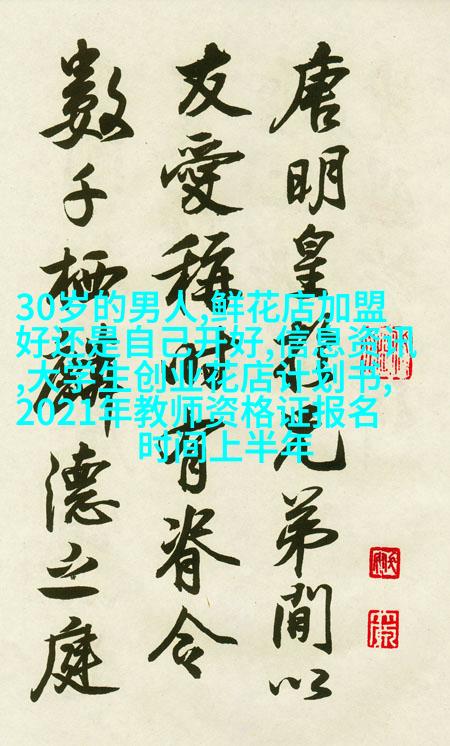 唐明皇兄弟間以
友愛稱時有脊令
數千栖麟德之庭
30岁的男人,鲜花店加盟
好还是自己开好,信息资讯
,大学生创业花店计划书,
2021年教师资格证报名
时间上半年